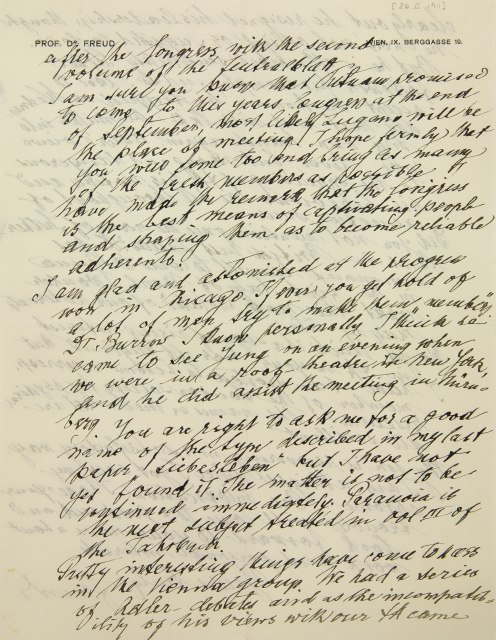 [26 II 1911]
PROF. Dr. FREUD
WIEN, IX. BERGGASSE 19.
after the Congress with the second
volume of the Centralblatt
I am sure you know that Putnam promised
to come to this years Congress at the end
of September, most likely Lugano will be
the place of meeting. I hope firmly that
you will come too and bring as many
of the fresh members as possible. I
have made the remark that the Congress
is the best means of captivating people
and shaping them as to become reliable
adherents.
I am glad and astonished at the progress
won in Chicago. If ever you get hold of
a lot of men try to make them "members",
Dr Burrow I know personally, I think he
came to see Jung on an evening when
we were in a roof theatre in New York,
and he did assist the meeting in Nürn-
berg. You are right to ask me for a good
name of the type described in my last
paper "Liebesleben" but I have not
yet found it. The matter is not to be
continued immediately. Paranoia is
the next subject treated in vol III of
the Jahrbuch.
interesting things have come to pass
in the Vienna group. We had a series
of Adler-debates and as the incompatib-
ility of his views with our came